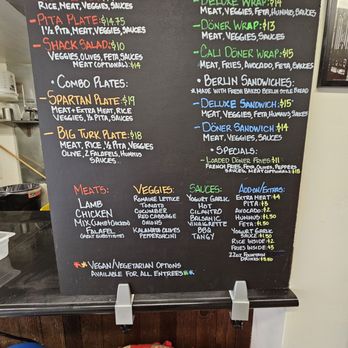 Rice, Meat, Veggies, Sauces
- Pita Plate - $14.75
1 ½ Pita, Meat, Veggies, Sauces
- Shack Salad - $10
Veggies, Olives, Feta, Sauces
Meat (optional) $4
• Combo Plates:
- Spartan Plate - $19
Meat + Extra Meat, Rice
Veggies, ½ Pita, Sauces
- Big Turk Plate - $18
Meat, Rice, ½ Pita, Veggies
Olive, 2 Falafels, Hummus
Sauces
- Deluxe Wrap - $14
Meat, Veggies, Feta, Hummus, Sauces
- Döner Wrap - $13
Meat, Veggies, Sauces
- Cali Döner Wrap - $15
Meat, Fries, Avocado, Feta, Sauces
• Berlin Sandwiches:
* Made with Fresh Baked Berlin Style Bread
- Deluxe Sandwich - $15
Meat, Veggies, Feta, Hummus, Sauces
- Döner Sandwich - $14
Meat, Veggies, Sauces
• Specials:
- Loaded Döner Fries - $11
French Fries, Feta, Olives, Peppers
Sauces, Meat (optional) $4
Meats:
Lamb
Chicken
Mix (Lamb & Chicken)
Falafel
(Meat Substitute)
Veggies:
Romaine Lettuce
Tomato
Cucumber
Red Cabbage
Onions
Kalamata Olives
Pepperoncini
Sauces:
Yogurt Garlic
Hot
Cilantro
Balsamic
Vinaigrette
BBQ
Tangy
Add-on/Extras:
Extra Meat $4
Pita $
Avocado $2
Hummus $1.50
Feta $1.50
Yogurt Garlic
Sauce $1.50
Rice Inside $2
Fries Inside $2
22oz Fountain
Drinks
Vegan/Vegetarian Options
Available For All Entrees